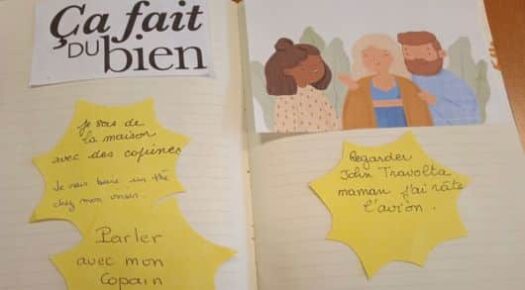 Ça fait
DU bien
Je sors de
la maison
avec des copines
Je vais boire un thé
chez mon voisin.
Parler
avec mon
Copain
Regarder
John Travolta
maman j'ai râté
l'avion.